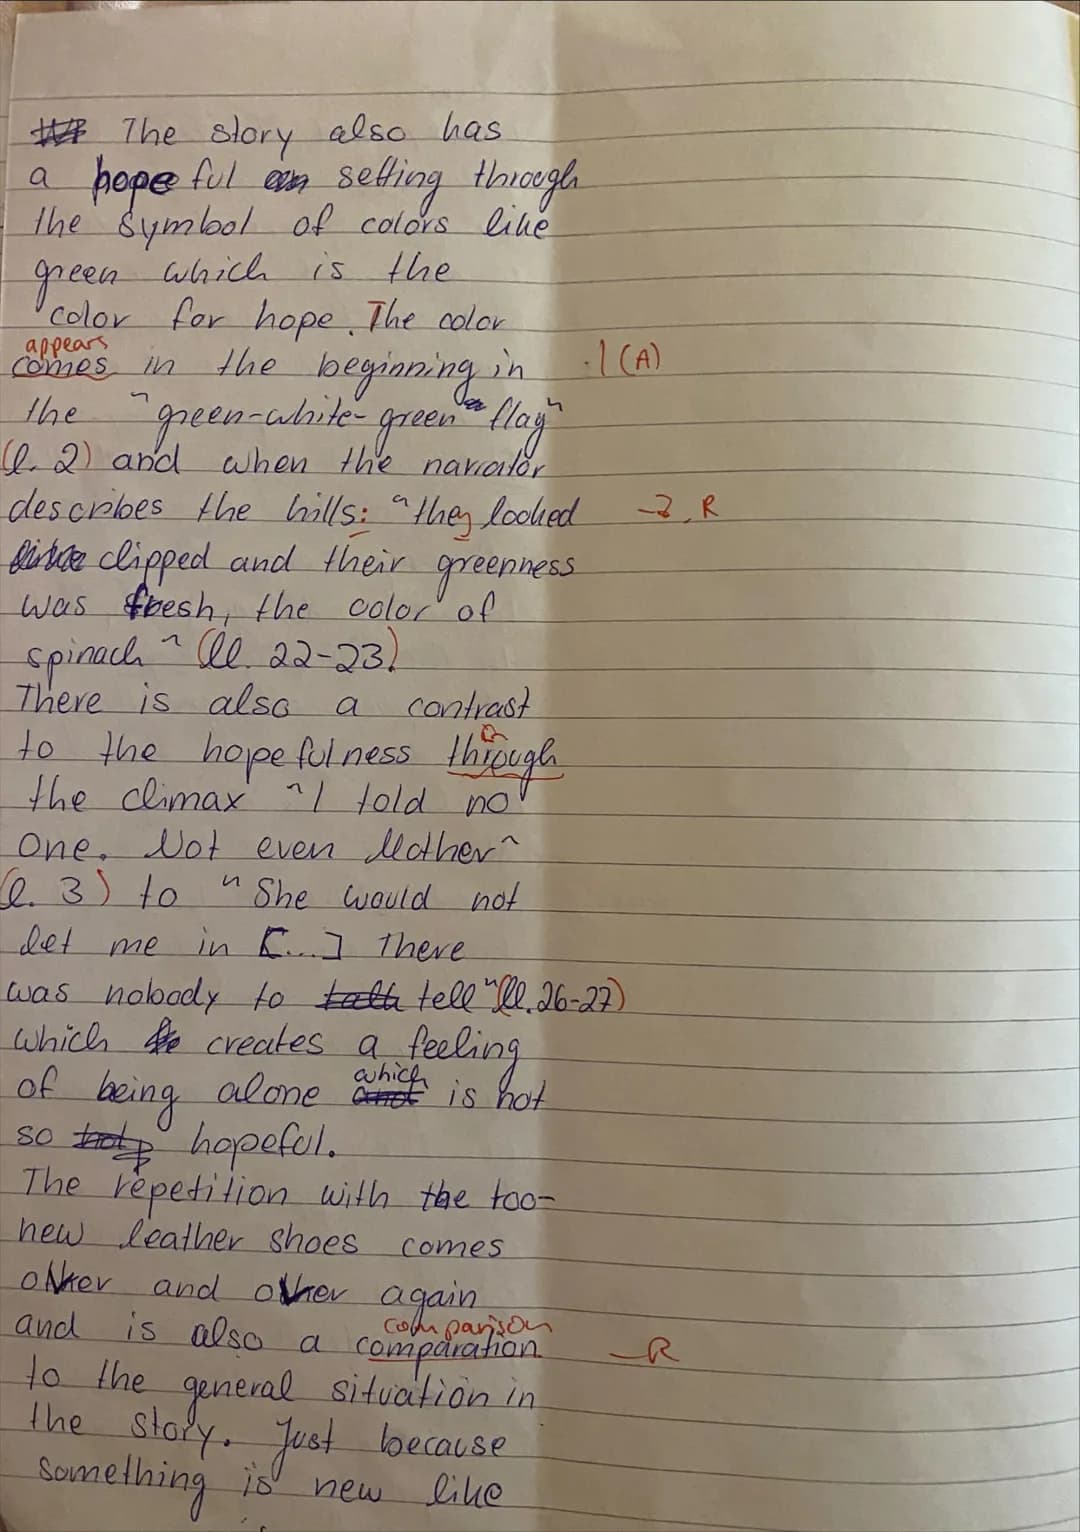 The story also has
a hopeful setting through
the symbol of colors like
green which is the
color for hope. The color
appears
comes in the beginning in -1 (A)
the "green-white-green flag"
(l. 2) and when the narrator
describes the hills: "they looked R
clipped and their greenness
was fresh, the color of
spinach" (ll. 22-23)
There is also a contrast
to the hopefulness through
the climax "I told no
one. Not even Mother"
(l. 3) to "She would not
let me in [...] There
was nobody to talk tell" (ll. 26-27)
which creates a feeling
which
of being alone and is not
so hopeful.
The repetition with the too-
new leather shoes comes
other and other again
comparison
and is also a comparation R
to the general situation in
the story. Just because
something is new like